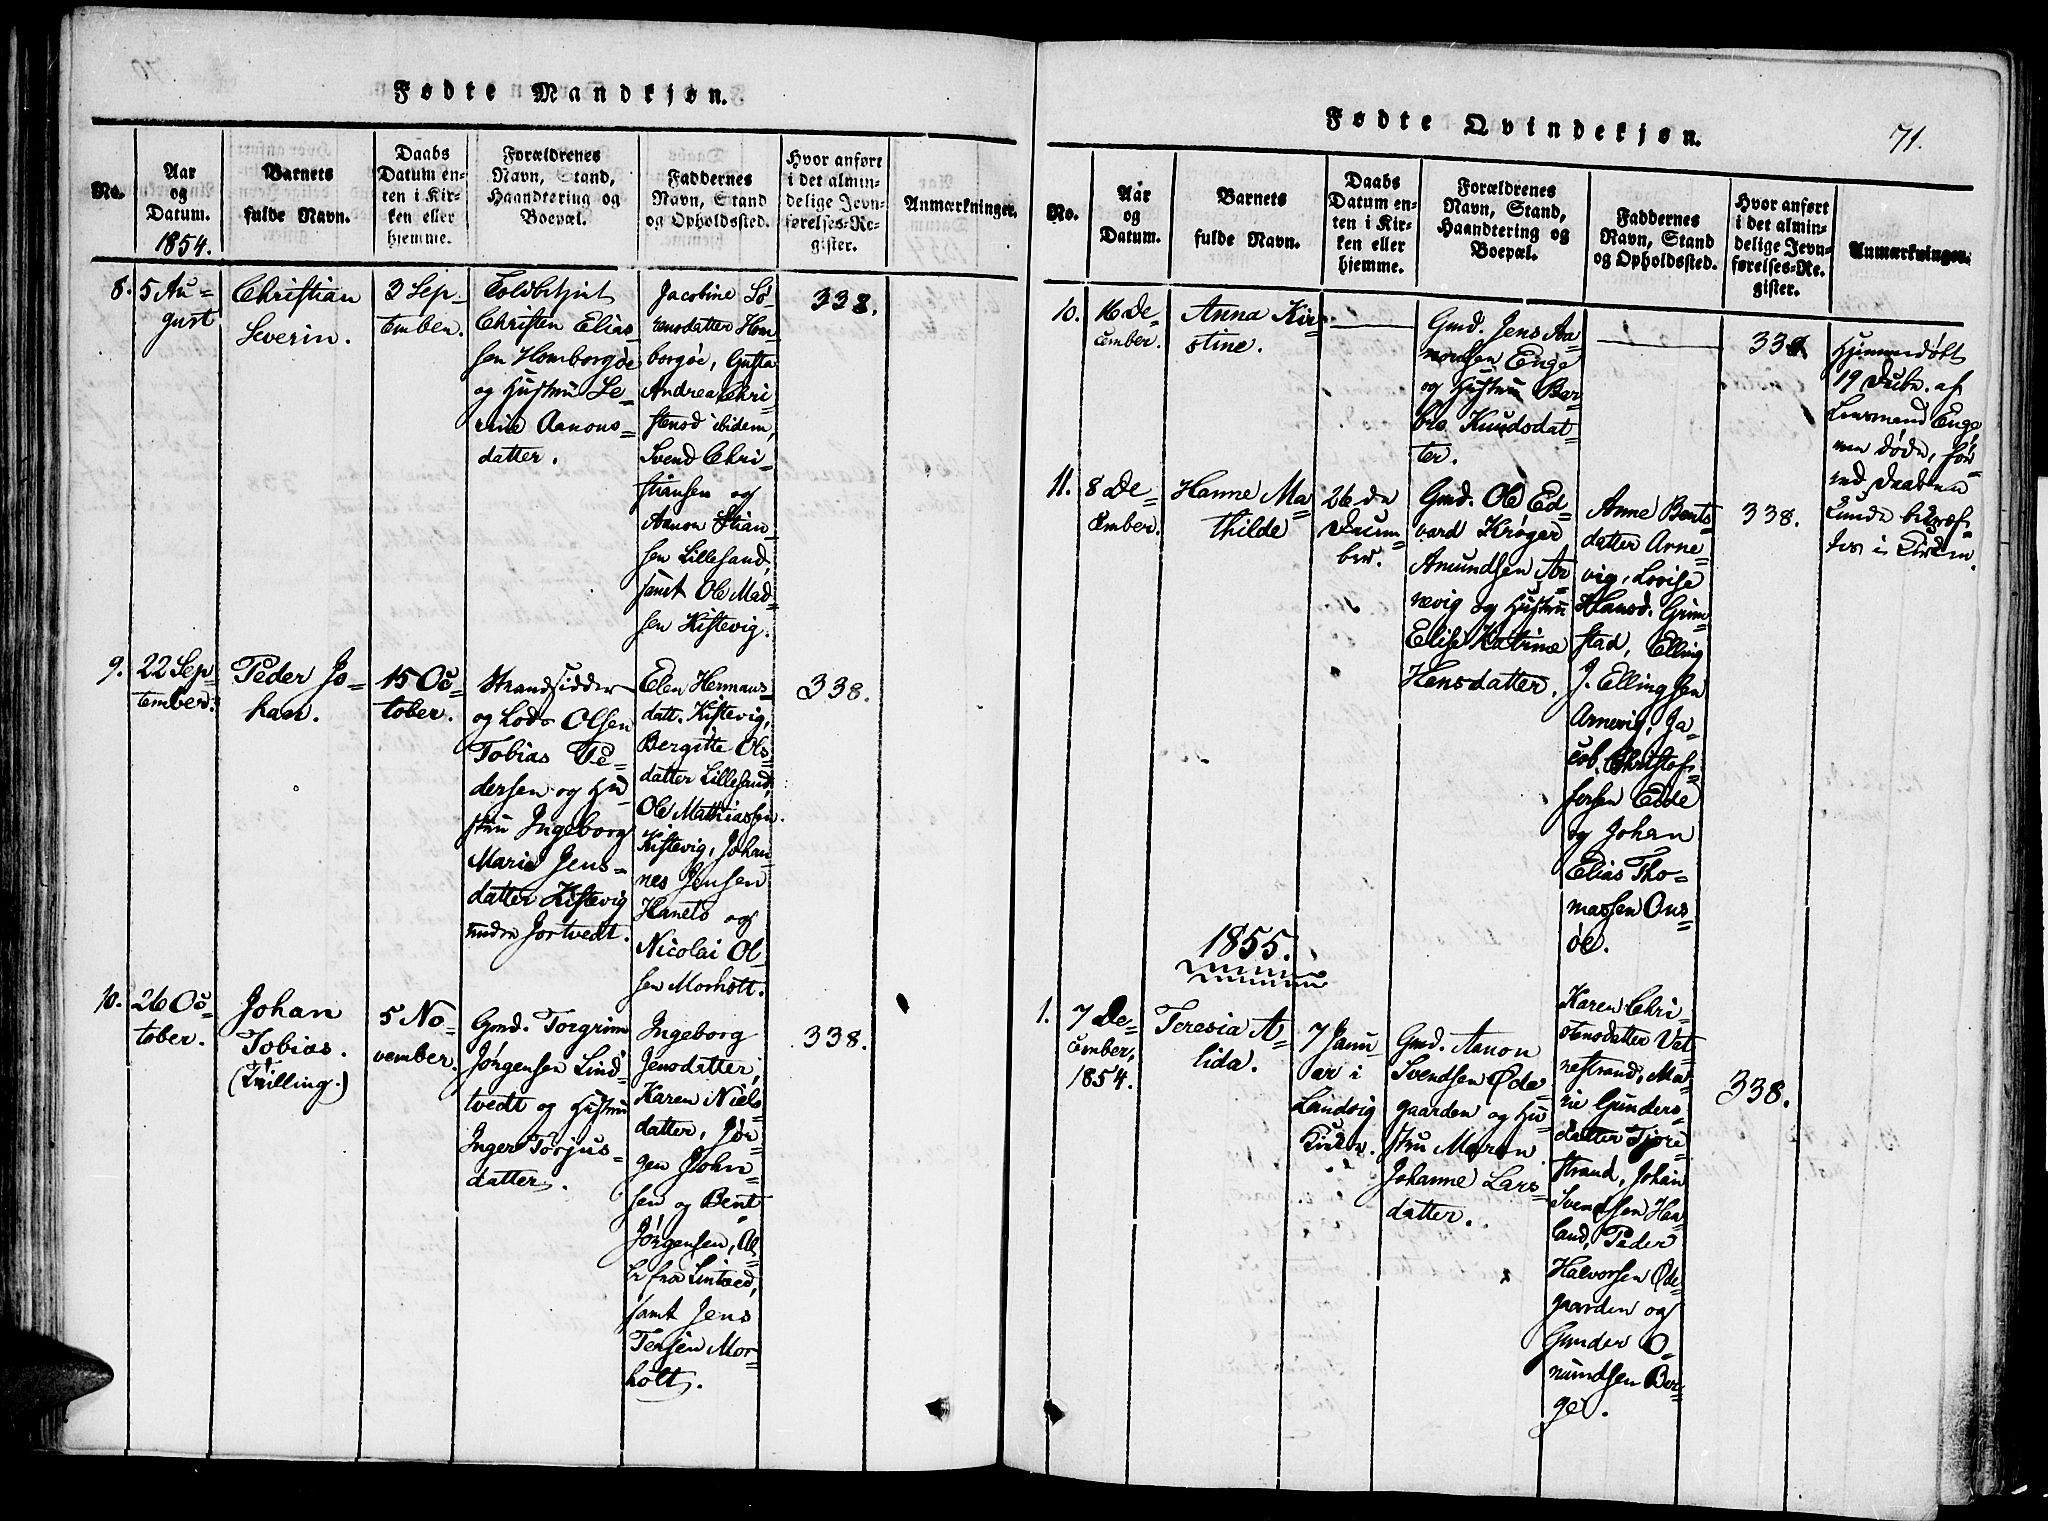 Fødte Mandkjøn.
No.
Aar
og
Datum.
1854.
Barnets
fulde Navn.
Daabs
Datum en-
ten i Kir-
ken eller
hjemme.
Forældrenes
Navn, Stand,
Haandtering og
Boepæl.
Faddernes
Navn, Stand
og Opholdssted.
Hvor anført
i det almin-
delige Jevn-
førelses-Re-
gister.
Anmærkninger.
8.
5 Au-
gust
Christian
Severin.
3 Sep-
tember.
Toldbetjent
Christen Elias-
sen Homborgøe
og Hustru Se-
rine Aanons-
datter.
Jacobine Sö-
rensdatter Hom-
borgöe, Gusta
Andrea Chri-
stensd ibidem,
Svend Chri-
stiansen og
Aanon Stian-
sen Lillesand,
samt Ole Mad-
sen Kistevig.
338.
9.
22 Sep-
tember.
Peder Jo-
han.
15 Oc-
tober.
Strandsidder
og Lods Olsen
Tobias Pe-
dersen og Hu-
stru Ingeborg
Marie Jens-
datter Kistevig
under Jortvedt.
Elen Hermans-
datt. Kistevig,
Bergitte Ols-
datter Lillesand,
Ole Mathiassen
Kistevig, Johan-
nes Jensen
Hanets og
Nicolai Ol-
sen Morholt.
338.
10.
26 Oc-
tober.
Johan
Tobias.
(Tvilling.)
5 No-
vember.
Gmd. Torgrim
Jörgensen Lind-
tvedt og Hustru
Inger Torjus-
datter.
Ingeborg
Jensdatter,
Karen Niels-
datter, Jör-
gen John-
sen og Bent
Jörgensen, Al-
le fra Lintved,
samt Jens
Terjesen Mor-
holt.
338.
Fødte Qvindekjøn.
71.
No.
Aår
og
Datum.
Barnets
fulde Navn.
Daabs
Datum en-
ten i Kir-
ken eller
hjemme.
Forældrenes
Navn, Stand,
Haandtering og
Boepæl.
Faddernes
Navn, Stand
og Opholdssted.
Hvor anført
i det almin-
delige Jevn-
førelses-Re-
gister.
Anmærkninger.
10.
16 De-
cember.
Anna Kir-
stine.
Gmd. Jens Aa-
nonsen Enge
og Hustru Bar-
bro Knudsdat-
ter.
338
Hjemmedøbt
19 Decbr. af
Lensmand Enge
men døde, før-
end Daaben
kunde bekræf-
tes i Kirken.
11.
8 De-
cember.
Hanne Ma-
thilde
26 de
Decem-
ber.
Gmd. Ole Ed-
vard Kröger
Amundsen Ar-
nevig og Hustru
Elise Katrine
Hansdatter.
Anne Bents-
datter Arne-
vig, Lovise
Hansd. Grim-
stad, Elling
J. Ellingsen
Arnevig, Ja-
cob Christof-
fersen Eide
og Johan
Elias Tho-
massen Ous-
öe.
338.
1855.
1.
7 De-
cember,
1854.
Teresia A-
lida.
7 Janu-
ar i
Landvig
Kirke.
Gmd. Aanon
Svendsen Øde-
gaarden og Hu-
stru Maren
Johanne Lars-
datter.
Karen Chri-
stensdatter Vet-
nestrand, Ma-
rie Gunders-
datter Tjore-
strand, Johan
Svendsen Haa-
land, Peder
Halvorsen Øde-
gaarden og
Gunder O-
numdsen Ber-
ge.
338.